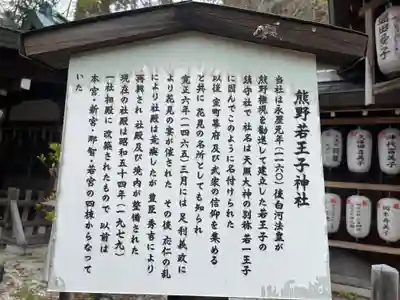 熊野若王子神社
当社は永暦元年(一一六〇)後白河法皇が
熊野権現を勧進して建立した若王子の
鎮守社で 社名は天照大神の別称 若一王子
に因んでこのように名付けられた
以後 室町幕府 及び武家の信仰を集める
と共に 花見の名所としても知られ
寛正六年(一四六五)三月には 足利義政に
より花見の宴が催された その後 応仁の乱
により社殿は荒廃したが 豊臣秀吉により
再興され 社殿及び境内が整備された
現在の社殿は昭和五十四年(一九七九)
一社相殿に改築されたもので 以前は
本宮・新宮・那智・若宮の四棟からなって
いた